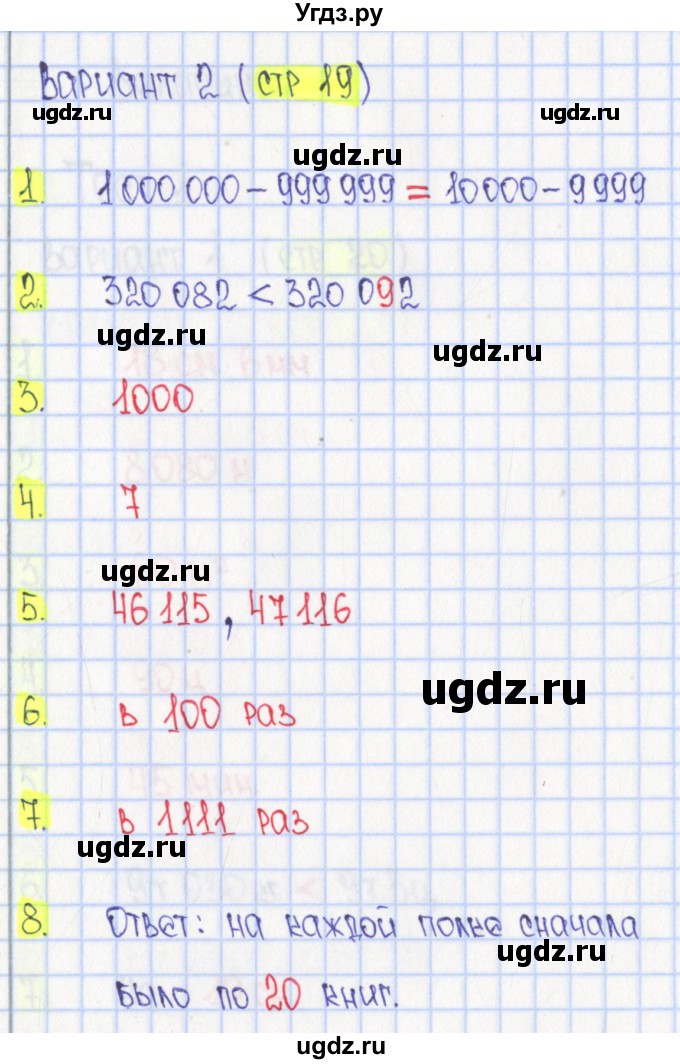 Угдз.ру
Вариант 2 (стр 19)
ugdz.ru ugdz.ru
ugdz.ru
1. 1 000 000 - 999 999 = 10 000 - 9 999
2. 320 082 < 320 092
ugdz.ru
ugdz.ru
3. 1000
4. 7
ugdz.ru
5. 46 115, 47 116
ugdz.ru
6. в 100 раз
7. в 1111 раз
ugdz.ru
8. Ответ: на каждой полке сначала
было по 20 книг.
ugdz.ru ugdz.ru